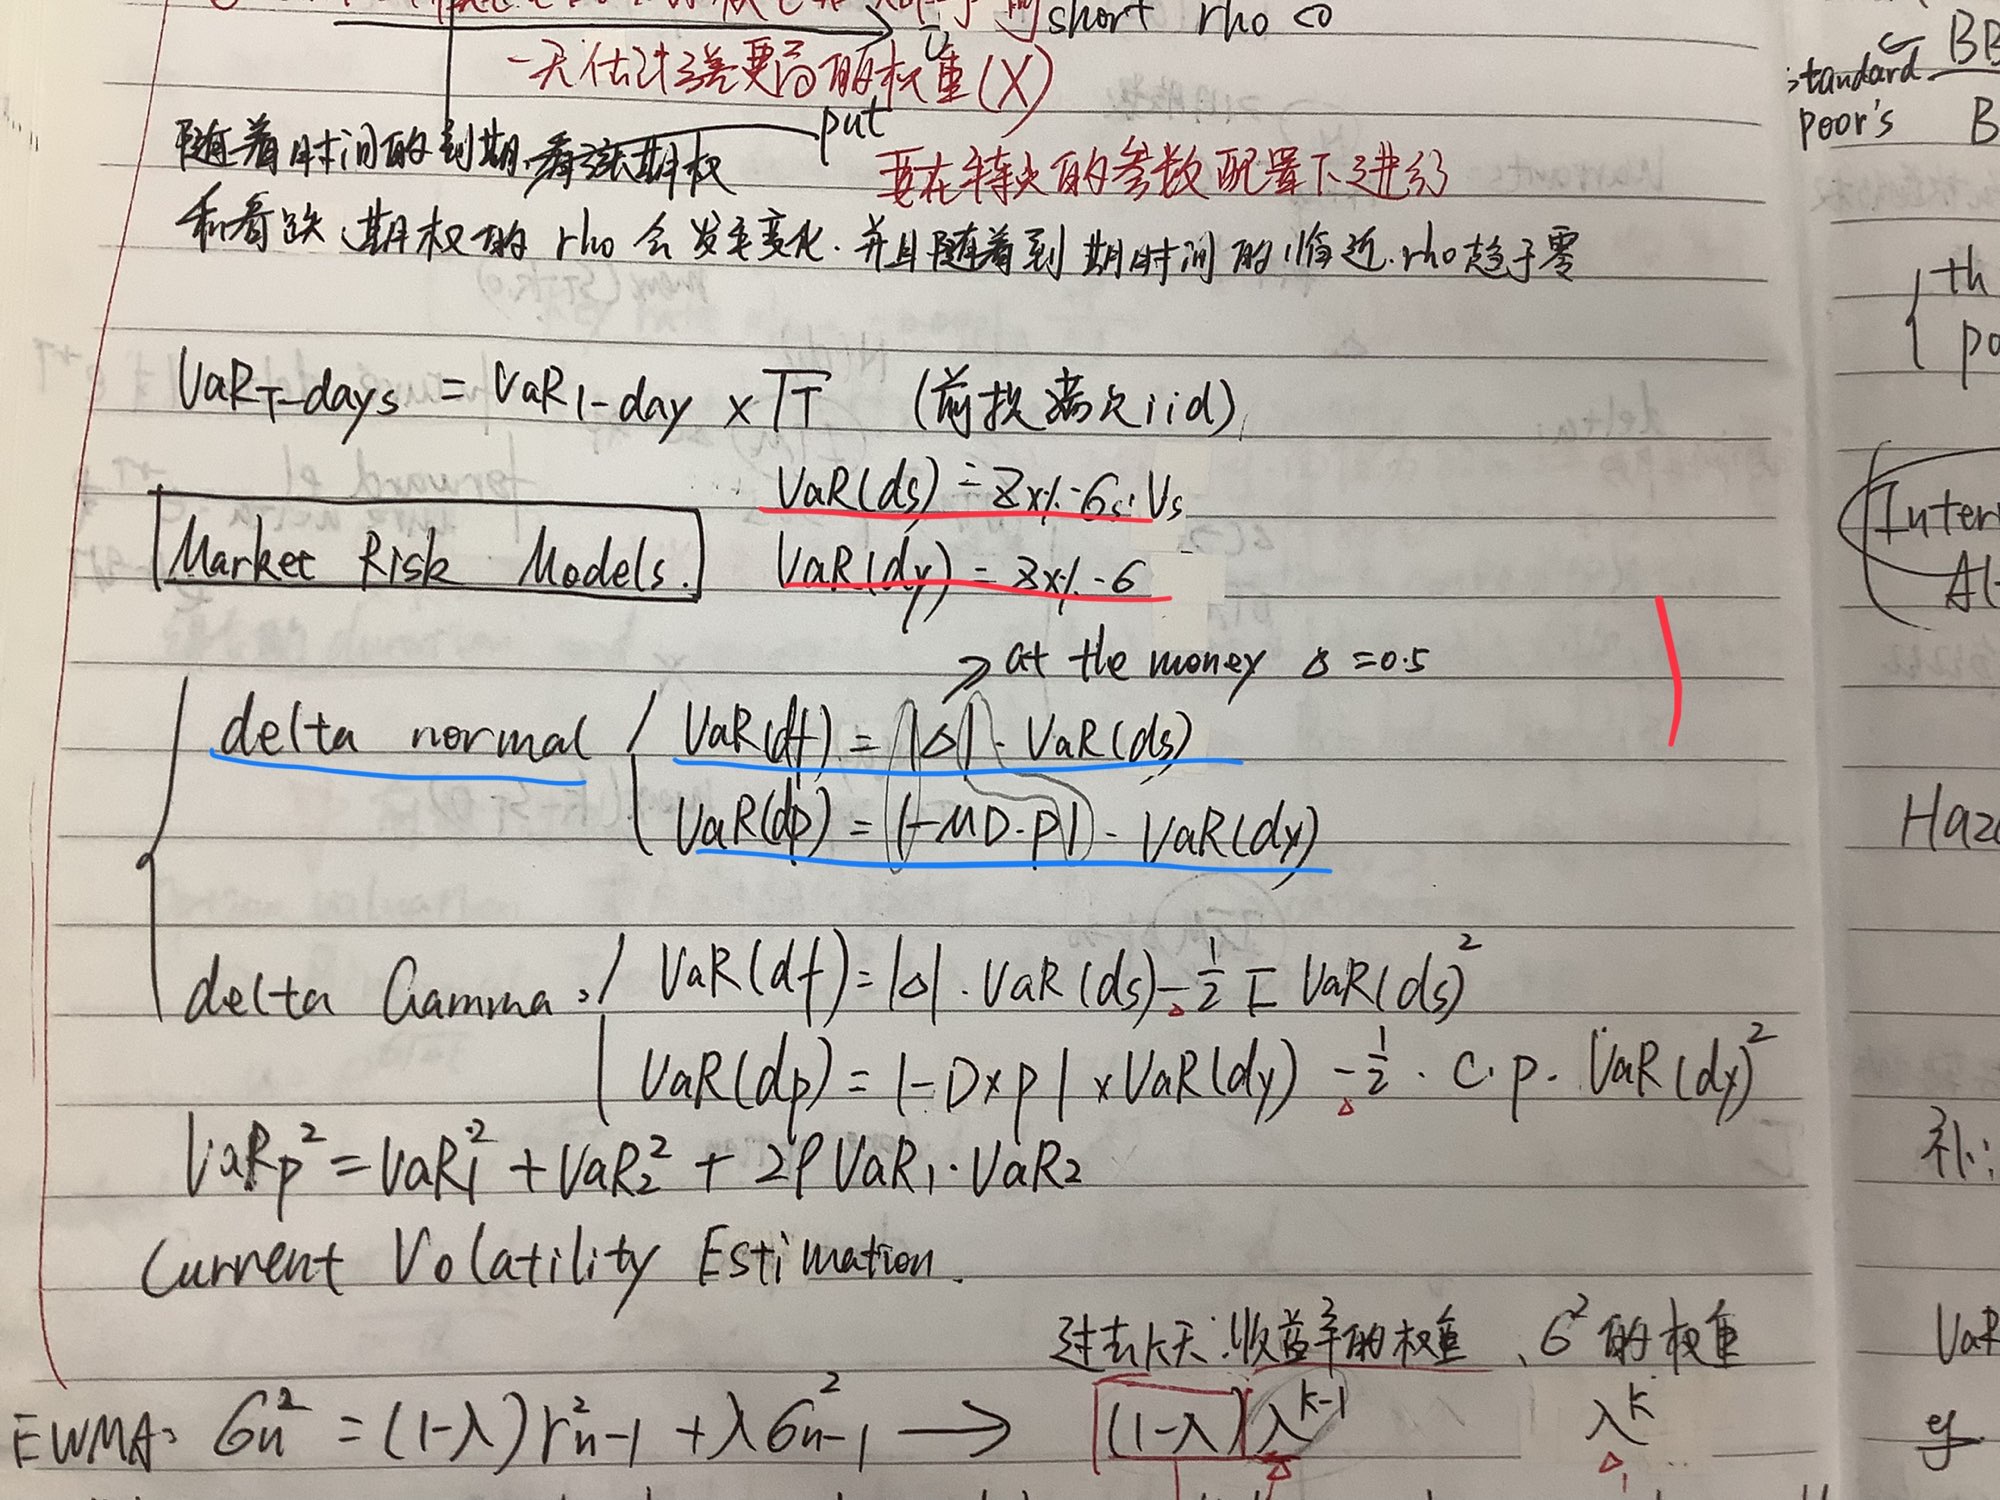 short rho <0
一天估计误差要高的权重(X)
put
随着时间的到期,看涨期权
要在特定的参数配置下进行
和看跌期权的 rho 会发生变化.并且随着到期时间的临近.rho趋于零
VaR T-days = VaR 1-day × √T (前提满足iid)
VaR(ds) = Zx%·σs·Vs
Market Risk Models.
VaR(dy) = Zx%·σ
→ at the money Δ=0.5
delta normal
VaR(df) = |Δ|·VaR(ds)
VaR(dp) = |-MD·P|·VaR(dy)
delta Gamma:
VaR(df)=|Δ|·VaR(ds)-½ Γ VaR(ds)²
VaR(dp)=|-D×p|×VaR(dy) -½·C·p·VaR(dy)²
VaRp²=VaR₁²+VaR₂²+2ρVaR₁·VaR₂
Current Volatility Estimation.
过去k天:收益率的权重、σ²的权重
EWMA: σn²=(1-λ)r²n-1+λσ²n-1 → (1-λ)λ^k-1 λ^k
BB
standard
poor's B
th
po
Inter
Al
Haz
补:
VaR
eg